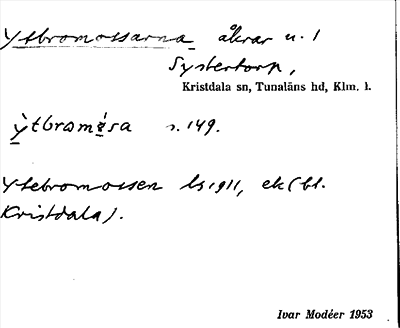 Ytbromossarna åkrar u. 1
Systertorp,
Kristdala sn, Tunaläns hd, Klm. l.
ỳtbromása s. 149.
Ytebromossen Ls 1911, ek (bl.
Kristdala).
Ivar Modéer 1953